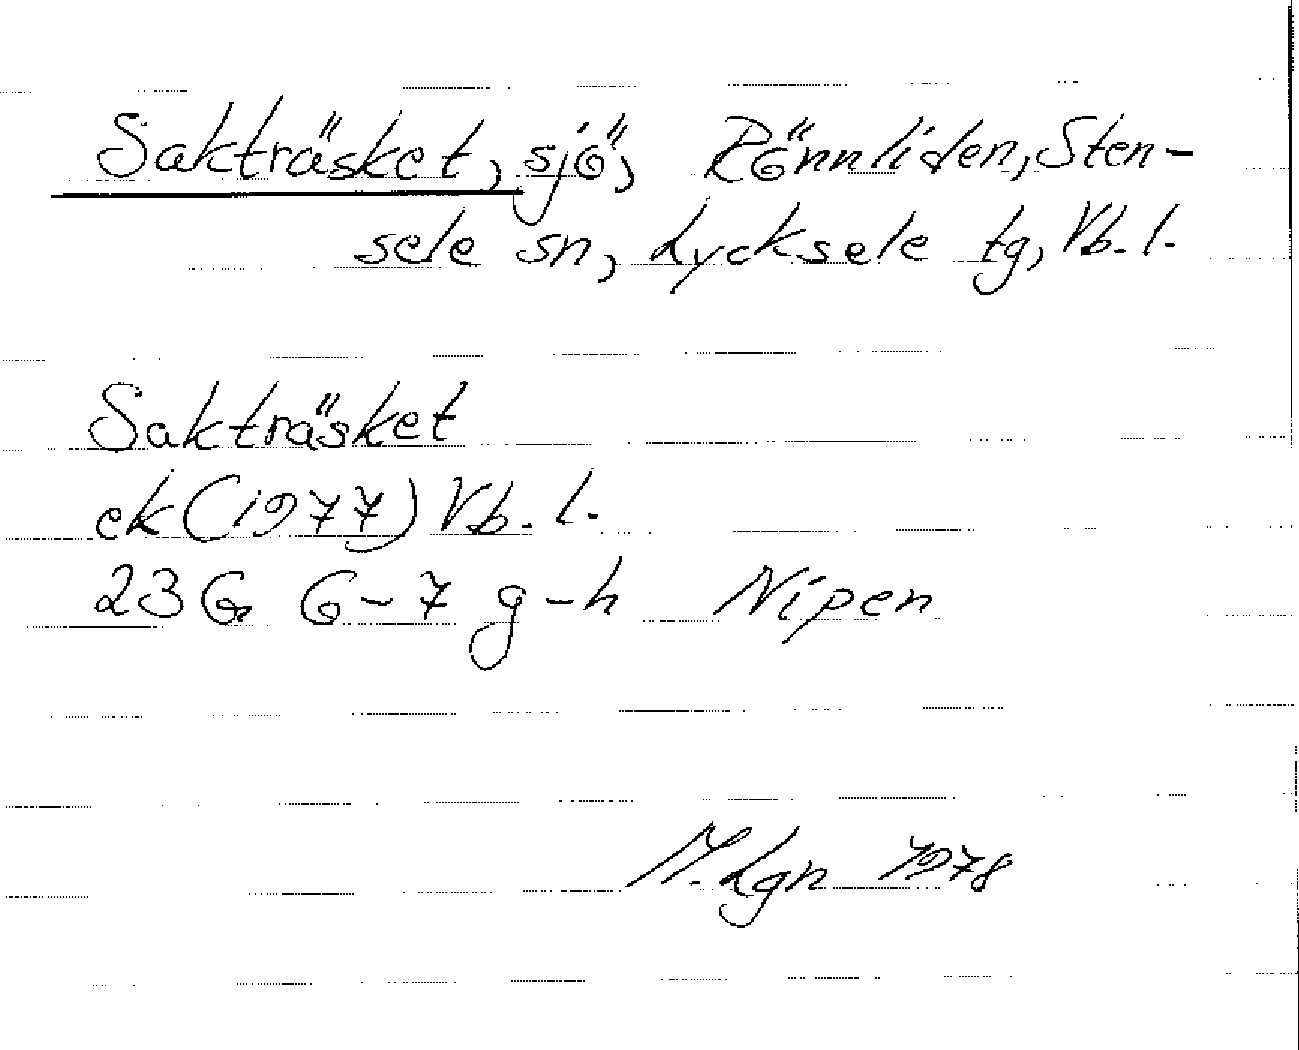 Sakträsket, sjö, Rönnliden, Sten-
sele sn, Lycksele tg, Vb. l.
Sakträsket
ek (1977) Vb. l.
23 G 6-7 g-h Nipen
M. Lgn 1978